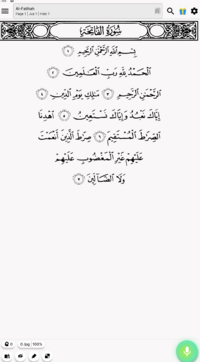 Al-Fatihah
Page 1 | Juz 1 | Hizb 1
سُورَةُ الْفَاتِحَةِ
بِسْمِ اللَّهِ الرَّحْمَٰنِ الرَّحِيمِ ١
الْحَمْدُ لِلَّهِ رَبِّ الْعَالَمِينَ ٢
الرَّحْمَٰنِ الرَّحِيمِ ٣ مَالِكِ يَوْمِ الدِّينِ ٤
إِيَّاكَ نَعْبُدُ وَإِيَّاكَ نَسْتَعِينُ ٥ اهْدِنَا
الصِّرَاطَ الْمُسْتَقِيمَ ٦ صِرَاطَ الَّذِينَ أَنْعَمْتَ
عَلَيْهِمْ غَيْرِ الْمَغْضُوبِ عَلَيْهِمْ
وَلَا الضَّالِّينَ ٧